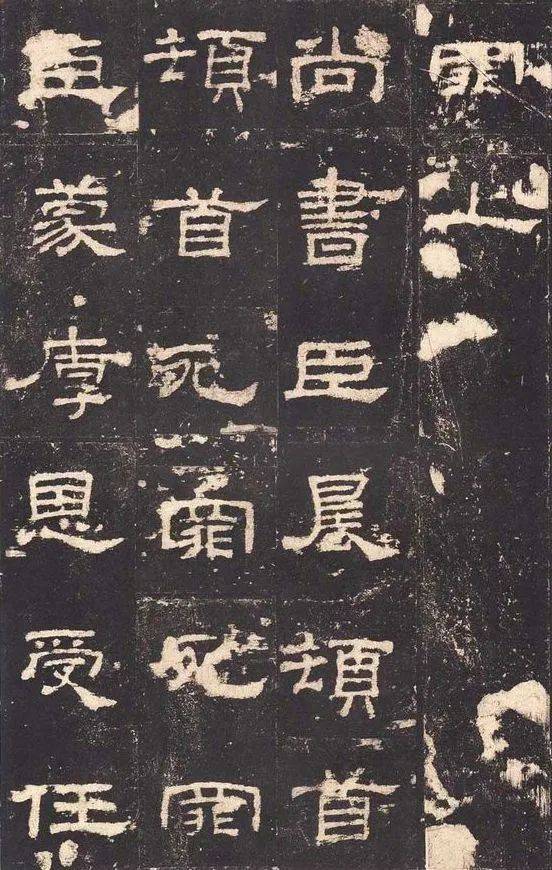 罪上
尚書臣晨頓首
頓首死罪死罪
臣蒙厚恩受任